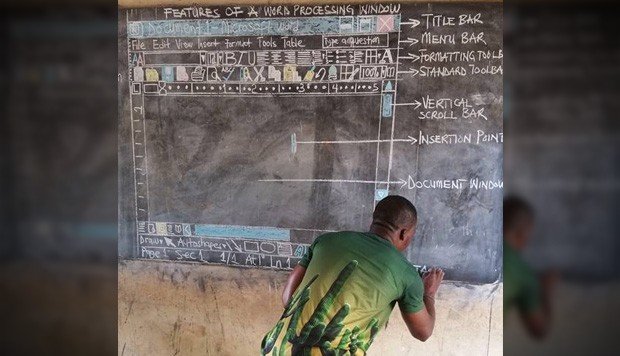 FEATURES OF A WORD PROCESSING WINDOW
Document 1 - Microsoft Word
TITLE BAR
File Edit View Insert Format Tools Table
Type a question
MENU BAR
B I U
A
FORMATTING TOOLB
100%
STANDARD TOOLBA
1 2 3 4 5
VERTICAL
SCROLL BAR
INSERTION POINT
DOCUMENT WINDOW
Draw
Autoshapes
Page 1 Sec 1 1/1 At 1" Ln 1